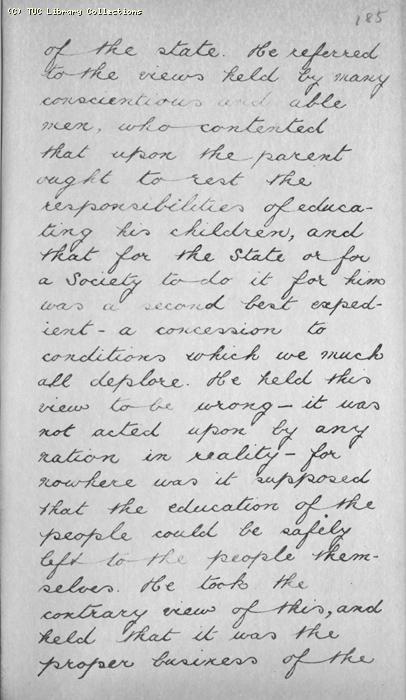 (C) TUC Library Collections
185
of the state. He referred
to the views held by many
conscientious and able
men, who contented
that upon the parent
ought to rest the
responsibilities of educa-
ting his children, and
that for the State or for
a Society to do it for him
was a second best exped-
ient - a concession to
conditions which we much
all deplore. He held this
view to be wrong - it was
not acted upon by any
nation in reality - for
nowhere was it supposed
that the education of the
people could be safely
left to the people them-
selves. He took the
contrary view of this, and
held that it was the
proper business of the